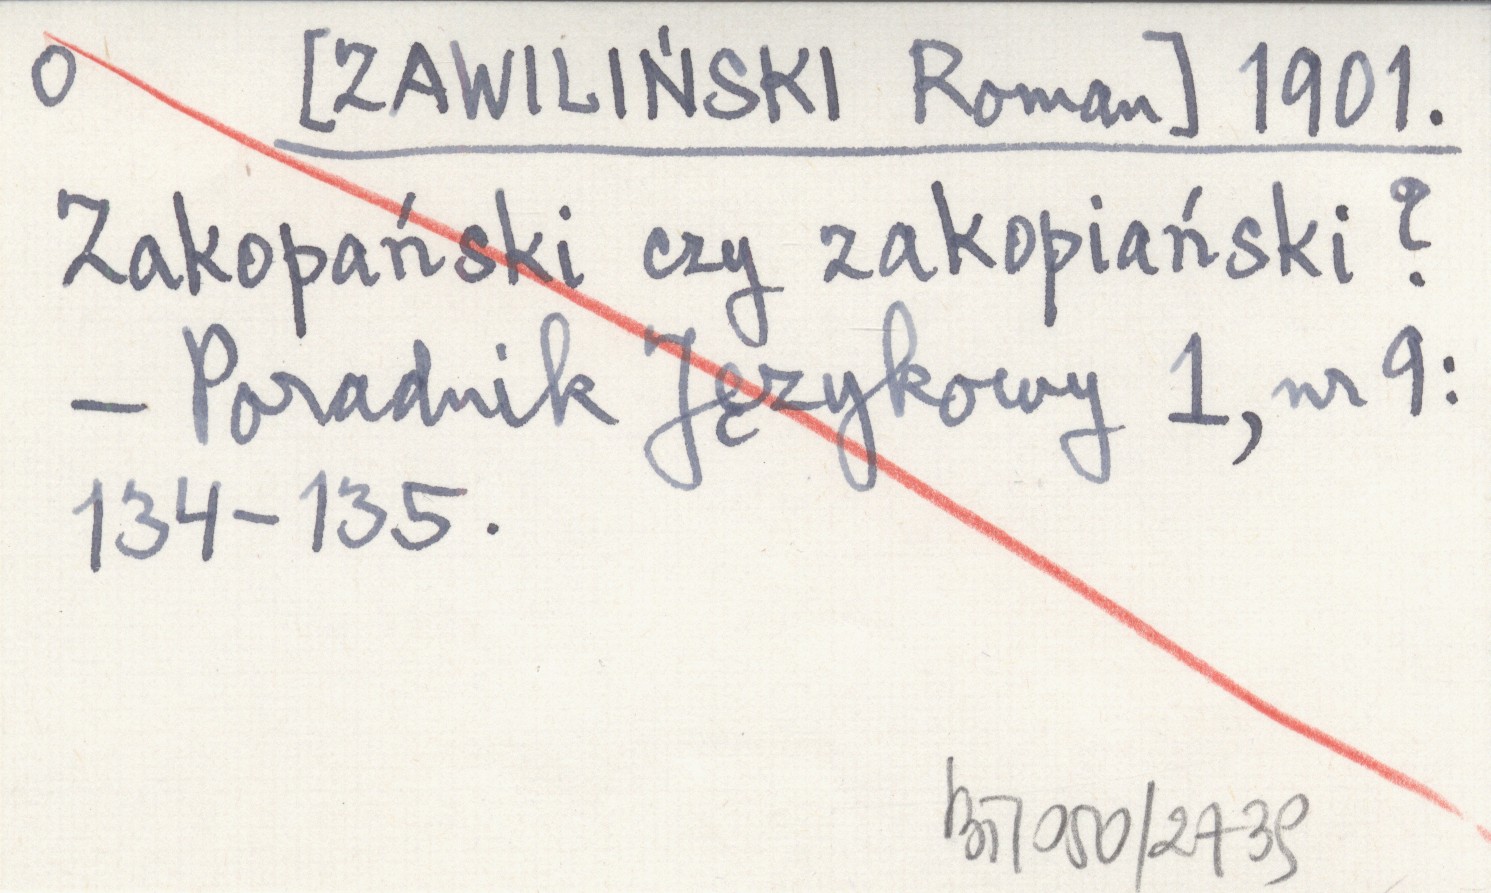 O [ZAWILIŃSKI Roman] 1901.
Zakopański czy zakopiański?
– Poradnik Językowy 1, nr 9:
134–135.
050/2739